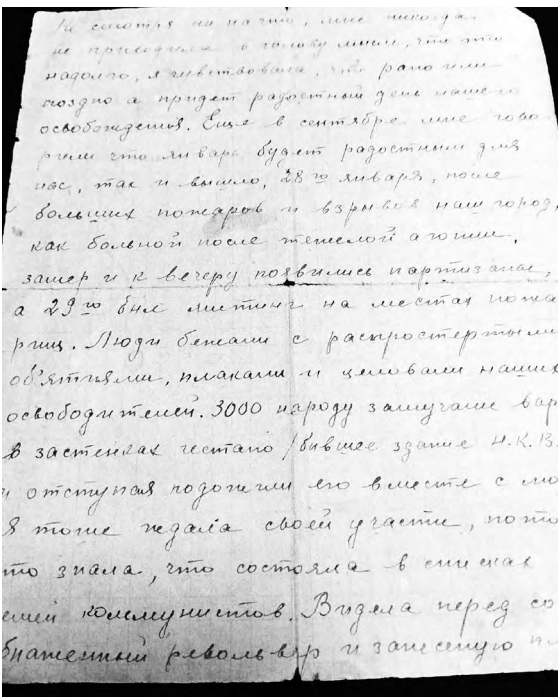 Не смотря ни на что, мне никогда
не приходила в голову мысль, что это
надолго, я чувствовала, что рано или
поздно а придет радостный день нашего
освобождения. Еще в сентябре мне гово-
рили что январь будет радостным для
нас, так и вышло, 28го января, после
больших пожаров и взрывов наш город,
как больной после тяжелой агонии,
замер и к вечеру появились партизаны,
а 29го был митинг на местах пожа
рищ. Люди бежали с распростертыми
об'ятиями, плакали и целовали наших
освободителей. 3000 народу замучали вар
в застенках гестапо /бывшее здание Н.К.В.
и отступая подожгли его вместе с лю
Я тоже ждала своей участи, пото
то знала, что состояла в списках
емей коммунистов. Видела перед со
бнаженный револьвер и занесеную пл